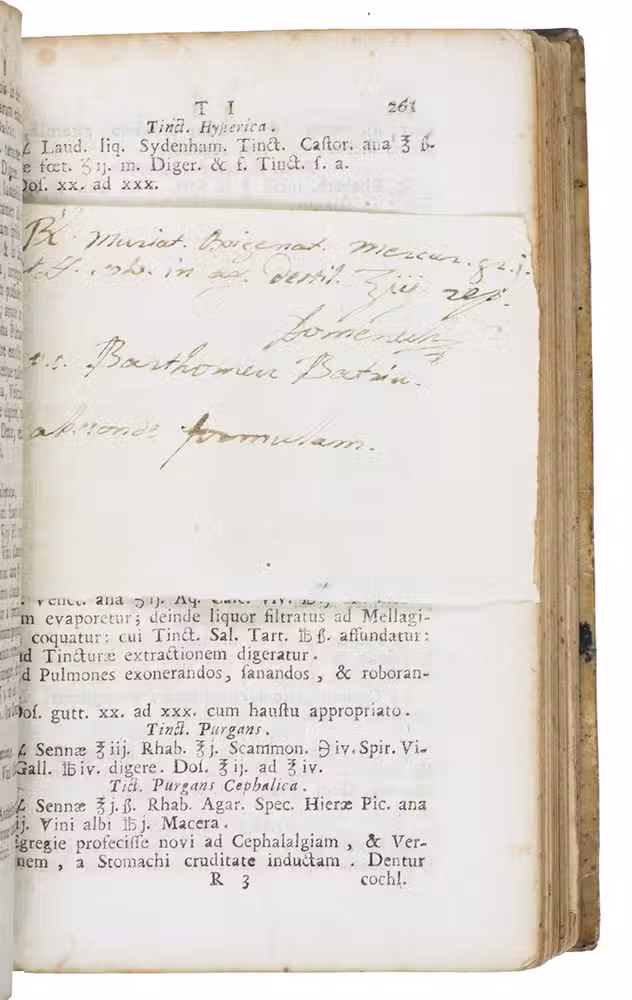 T I 261
Tinct. Hyſterica.
Laud. liq. Sydenham. Tinct. Caſtor. ana ʒ̄ ß.
fœt. ʒ ij. m. Diger. & f. Tinct. ſ. a.
Doſ. xx. ad xxx.
℞ Muriat. Oxigenat. mercur. gr. j.
in aq. destil.
Domenech
Barthomeu Batriu.
formulam.
Venet. ana ʒ ij. Aq.
m evaporetur; deinde liquor filtratus ad Mellagi-
coquatur: cui Tinct. Sal. Tart. ℔ ß. affundatur:
d Tincturæ extractionem digeratur.
d Pulmones exonerandos, ſanandos, & roboran-
Doſ. gutt. xx. ad xxx. cum hauſtu appropriato.
Tinct. Purgans.
Sennæ ℥ iij. Rhab. ℥ j. Scammon. ℈ iv. Spir. Vi-
Gall. ℔ iv. digere. Doſ. ℥ ij. ad ℥ iv.
Tict. Purgans Cephalica.
Sennæ ℥ j. ß. Rhab. Agar. Spec. Hieræ Pic. ana
ij. Vini albi ℔ j. Macera.
gregie profeciſſe novi ad Cephalalgiam, & Ver-
nem, a Stomachi cruditate inductam. Dentur
R 3 cochl.